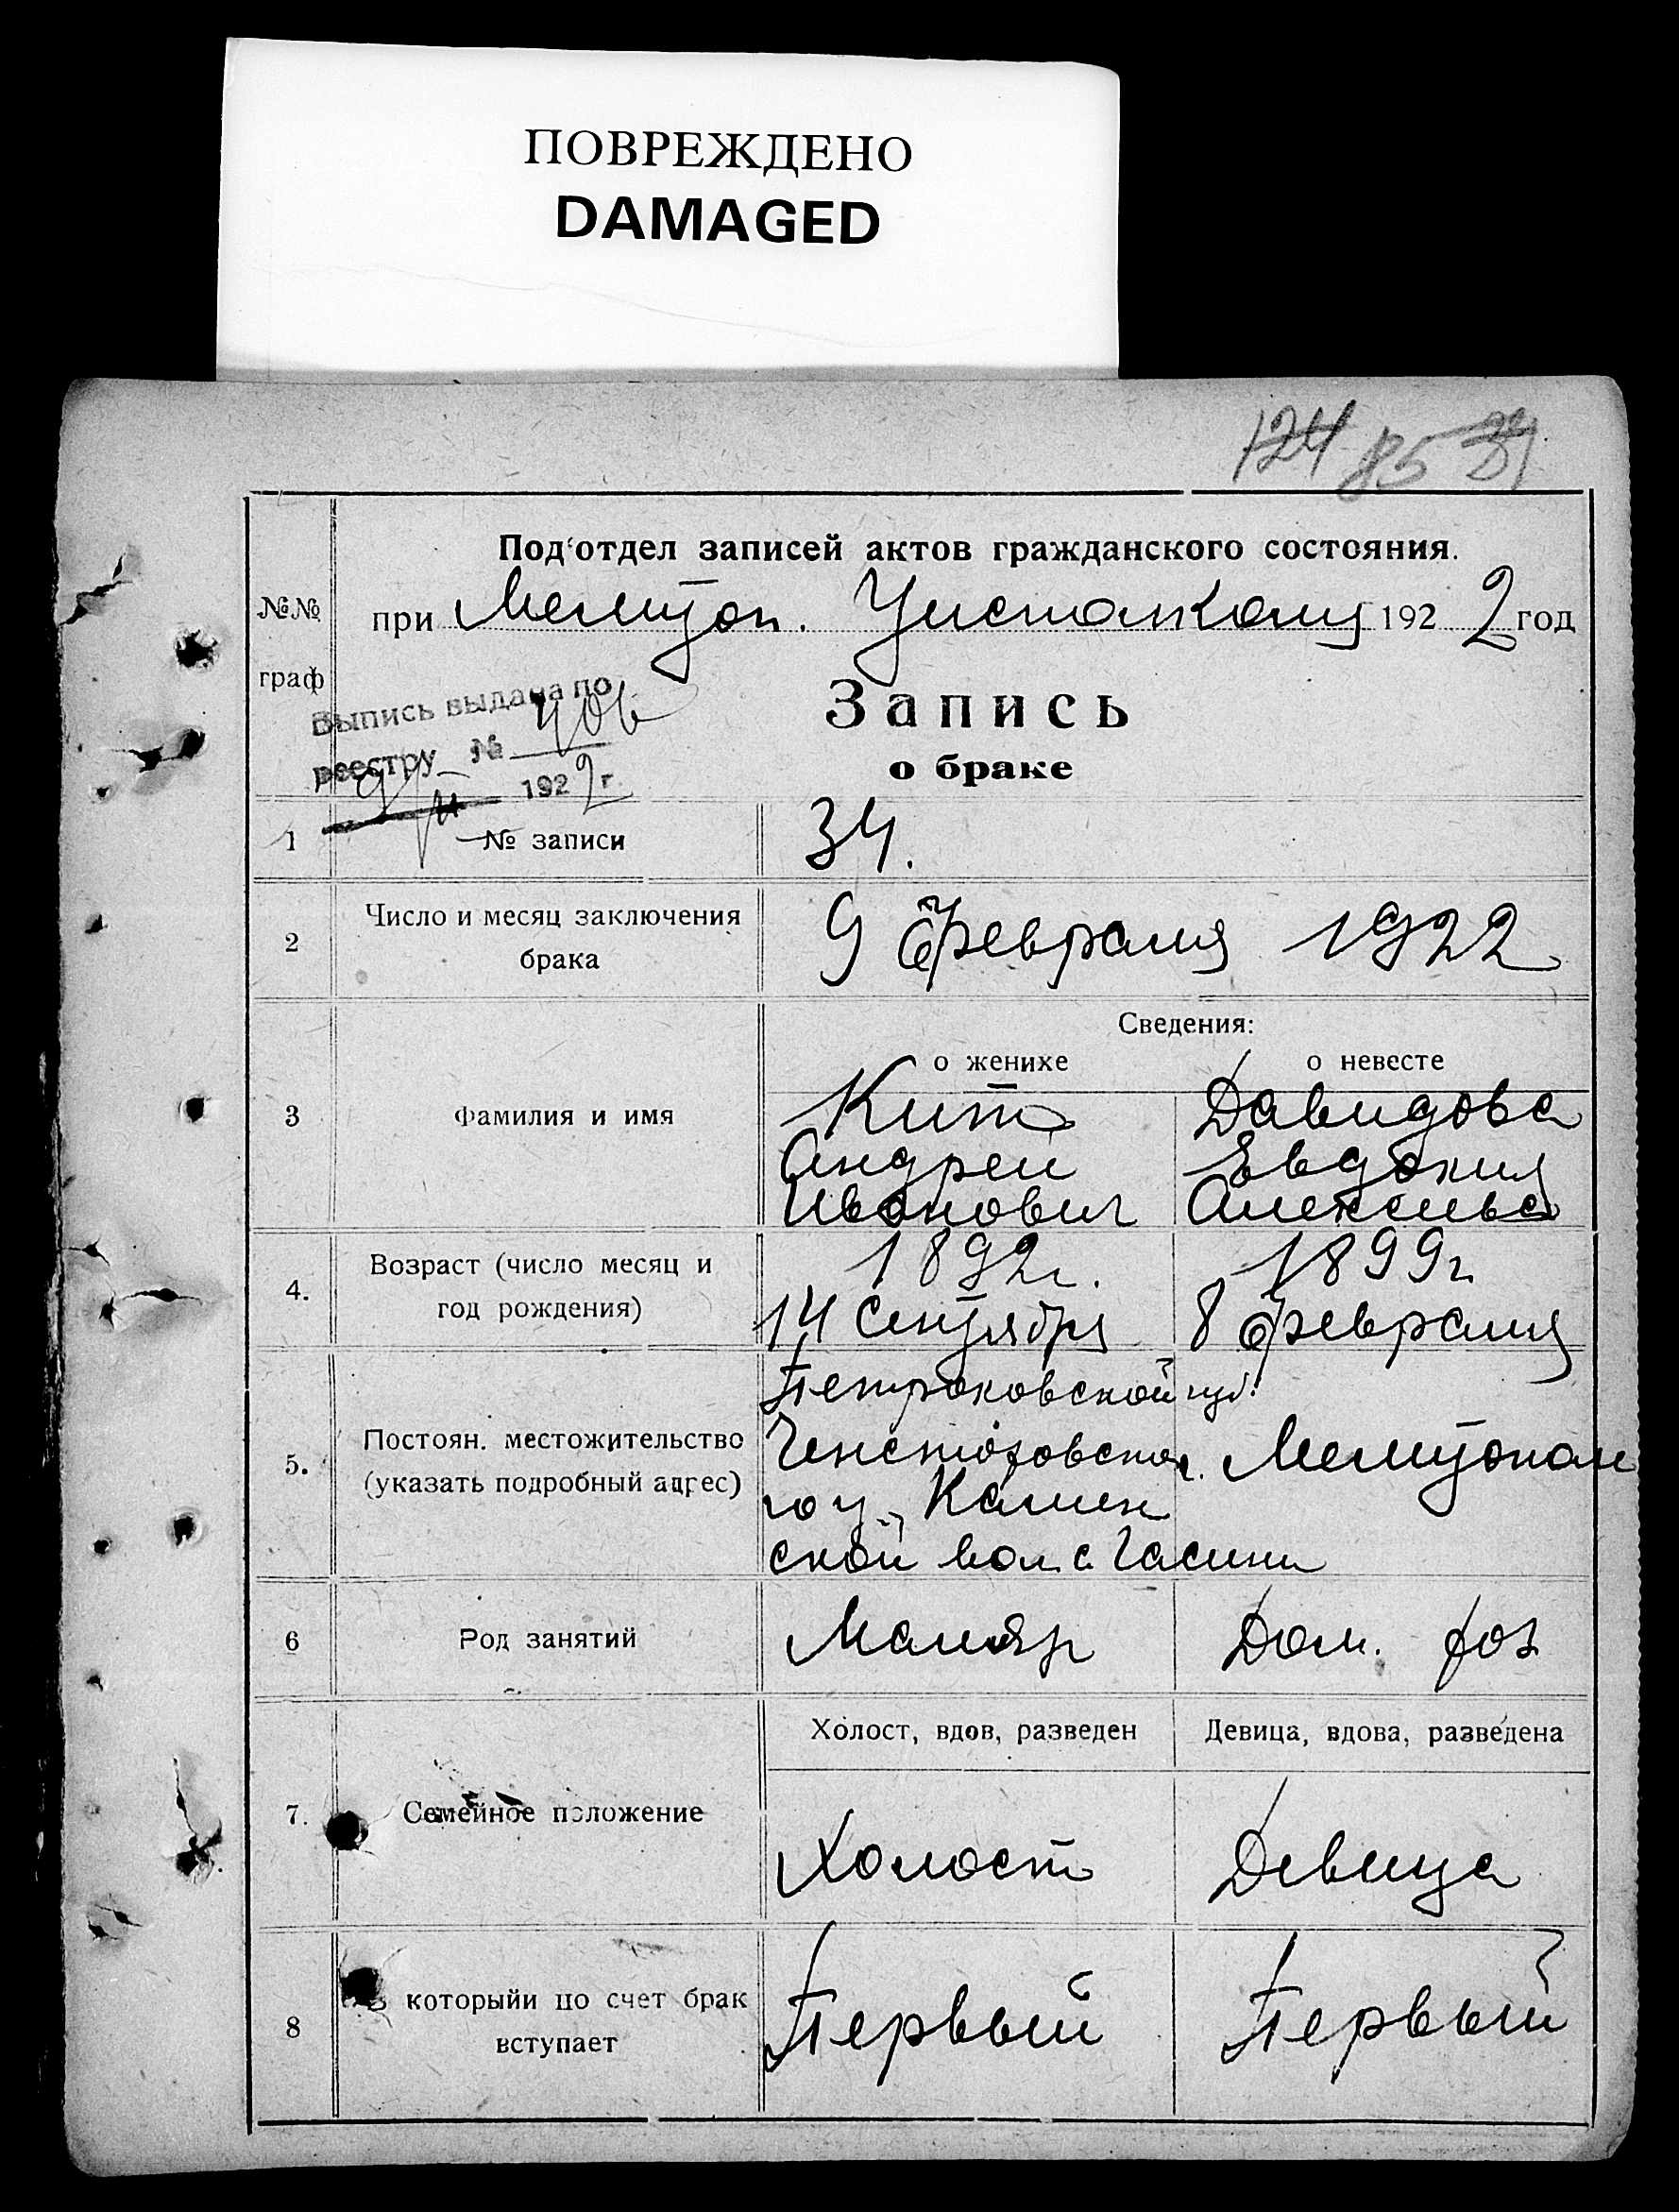 ПОВРЕЖДЕНО
DAMAGED
124 85 31
Под'отдел записей актов гражданского состояния.
№№ граф
при Мелитоп. Уисполкому 1922 год
Выпись выдана по
реестру № 406
9/II 1922 г.
Запись
о браке
1 № записи 34.
2 Число и месяц заключения брака 9 февраля 1922
Сведения:
о женихе о невесте
3 Фамилия и имя
Кит Давидова
Андрей Евдокия
Иванович Алексеевa
4. Возраст (число месяц и год рождения)
1892г. 1899г
14 Сентября 8 февраля
5. Постоян. местожительство (указать подробный адрес)
Петроковской губ.
Ченстоховско г. Мелитополь
го у., Камен
ской вол с.
6 Род занятий Маляр Дом. хоз
Холост, вдов, разведен Девица, вдова, разведена
7. Семейное положение Холост Девица
8 которыйи по счет брак вступает Первый Первый